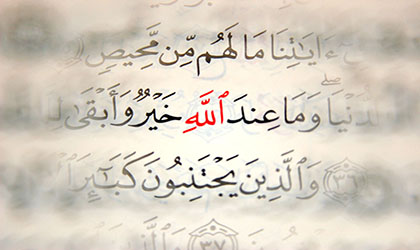 ءَايَٰتِنَا مَا لَهُم مِّن مَّحِيصٍ
ٱلدُّنْيَا ۖ وَمَا عِندَ ٱللَّهِ خَيْرٌ وَأَبْقَىٰ
٣٦ وَٱلَّذِينَ يَجْتَنِبُونَ كَبَٰٓئِرَ
٣٧